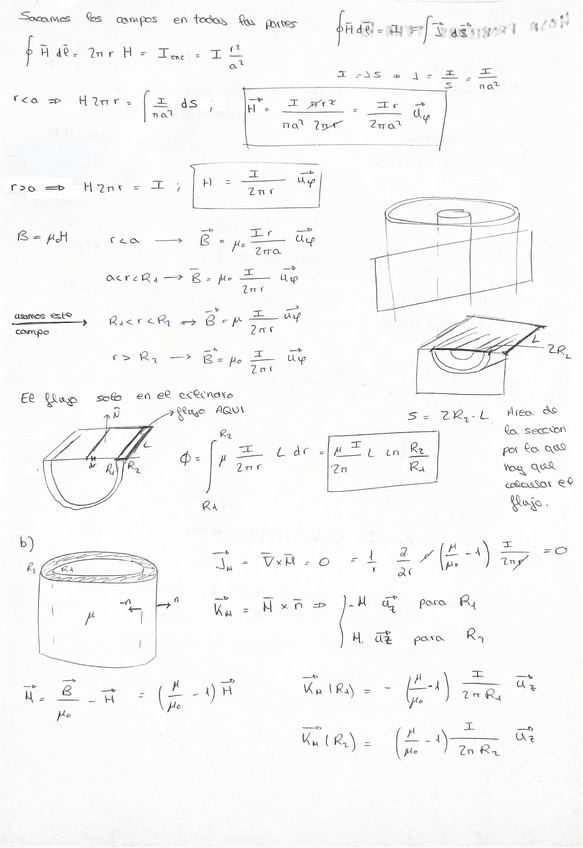 Sacamos los campos en todas las partes
∮ H̄ dl̄ = I = ∫ J̄ dS̄
∮ H̄ dl̄ = 2πr H = I_enc = I r²/a²
I = JS ⇒ J = I/S = I/πa²
r<a ⇒ H 2πr = ∫ I/πa² dS ; H⃗ = I πr²/(πa² 2πr) = Ir/2πa² u⃗φ
r>a ⇒ H2πr = I ; H = I/2πr u⃗φ
B = μ₀H r<a → B⃗ = μ₀ Ir/2πa u⃗φ
a<r<R₁ → B̄ = μ₀ I/2πr u⃗φ
usamos este campo → R₁<r<R₂ ⇒ B⃗ = μ I/2πr u⃗φ
r > R₂ → B⃗ = μ₀ I/2πr u⃗φ
L
2R₂
El flujo solo en el cilindro
flujo AQUI
N̄
L
dr R₁ R₂
ϕ = ∫_R₁^R₂ μ I/2πr L dr = μI/2π L ln R₂/R₁
S = 2R₂·L
Area de
la seccion
por la que
hay que
calcular el
flujo.
b)
R₂ R₁
-n n
μ
J⃗_M = ∇̄×M̄ = 0 = 1/r ∂/∂r r (μ/μ₀ - 1) I/2πr = 0
K⃗_M = M̄ × n̄ ⇒ { -M u⃗z para R₁
M u⃗z para R₂
M⃗ = B⃗/μ₀ - H⃗ = (μ/μ₀ - 1) H⃗
K⃗_M (R₁) = - (μ/μ₀ - 1) I/2πR₁ u⃗z
K⃗_M (R₂) = (μ/μ₀ - 1) I/2πR₂ u⃗z